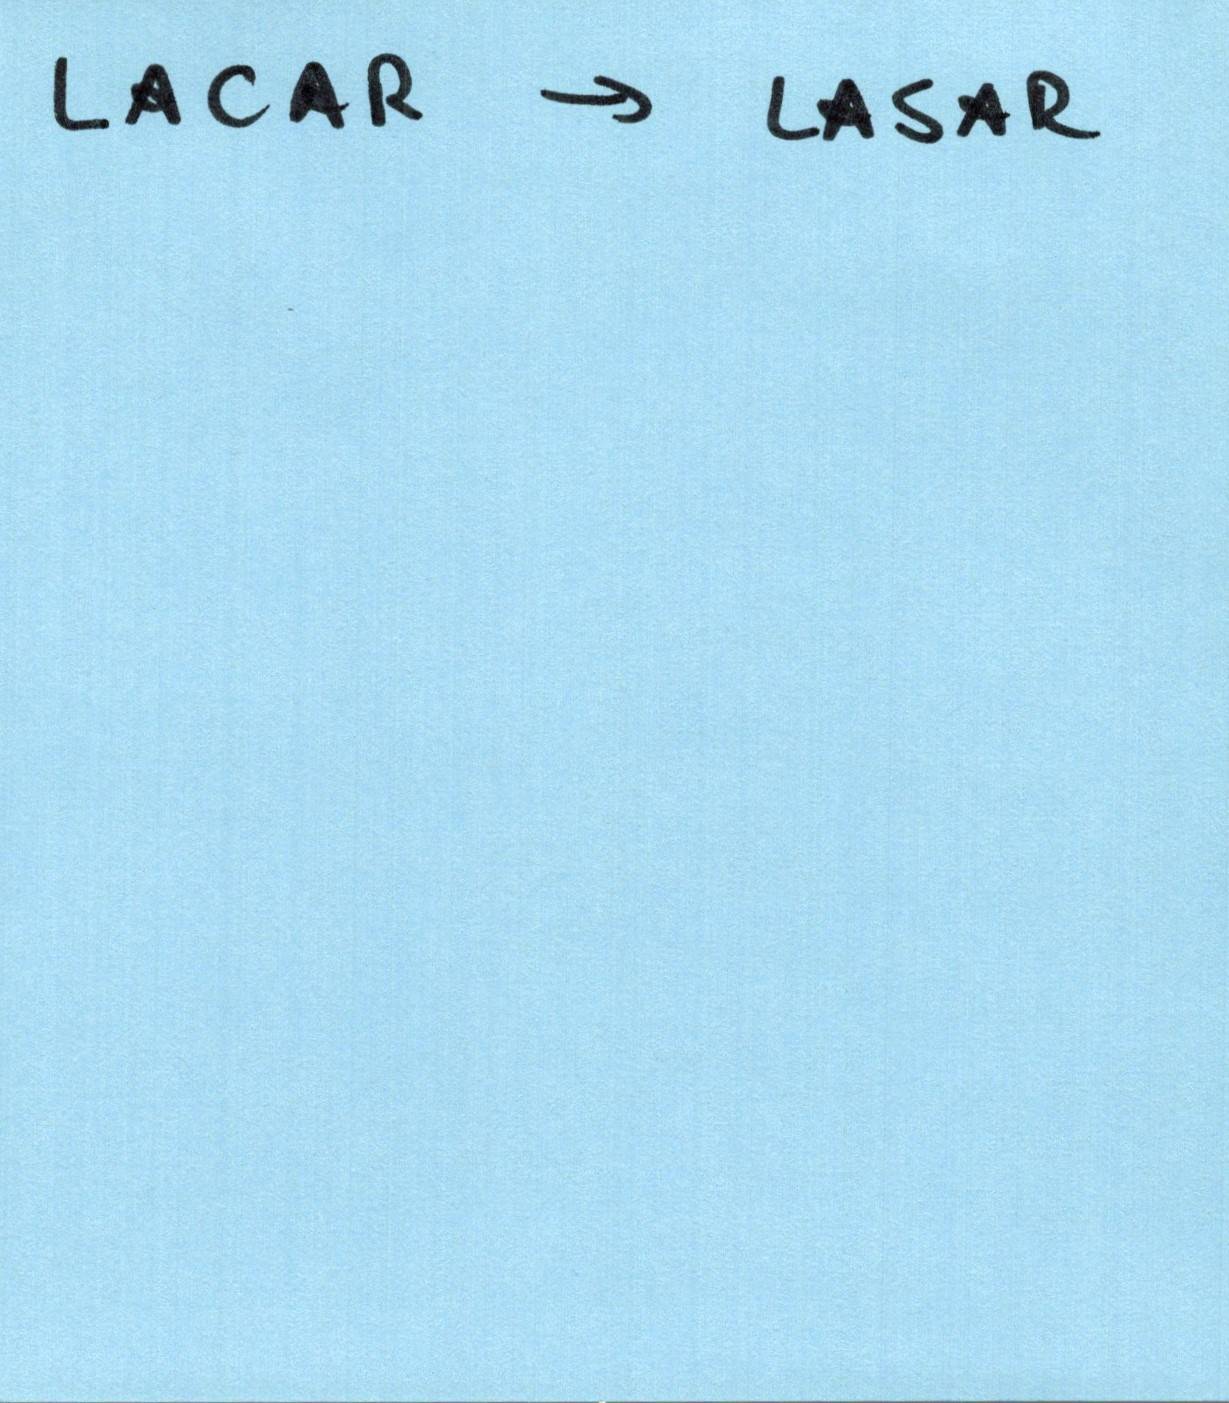 LACAR → LASAR